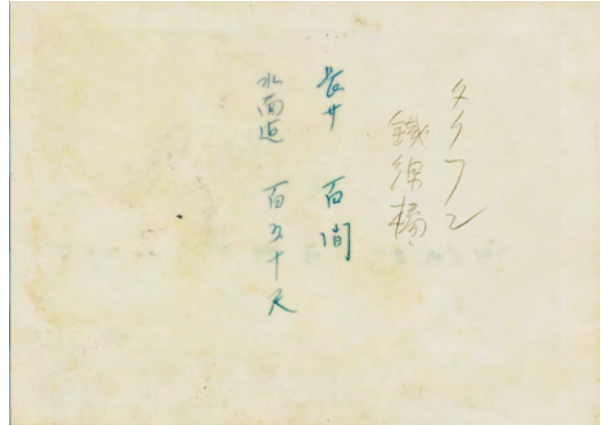 タイフン
鐵線橋
長サ 百間
水面迄 百五十尺